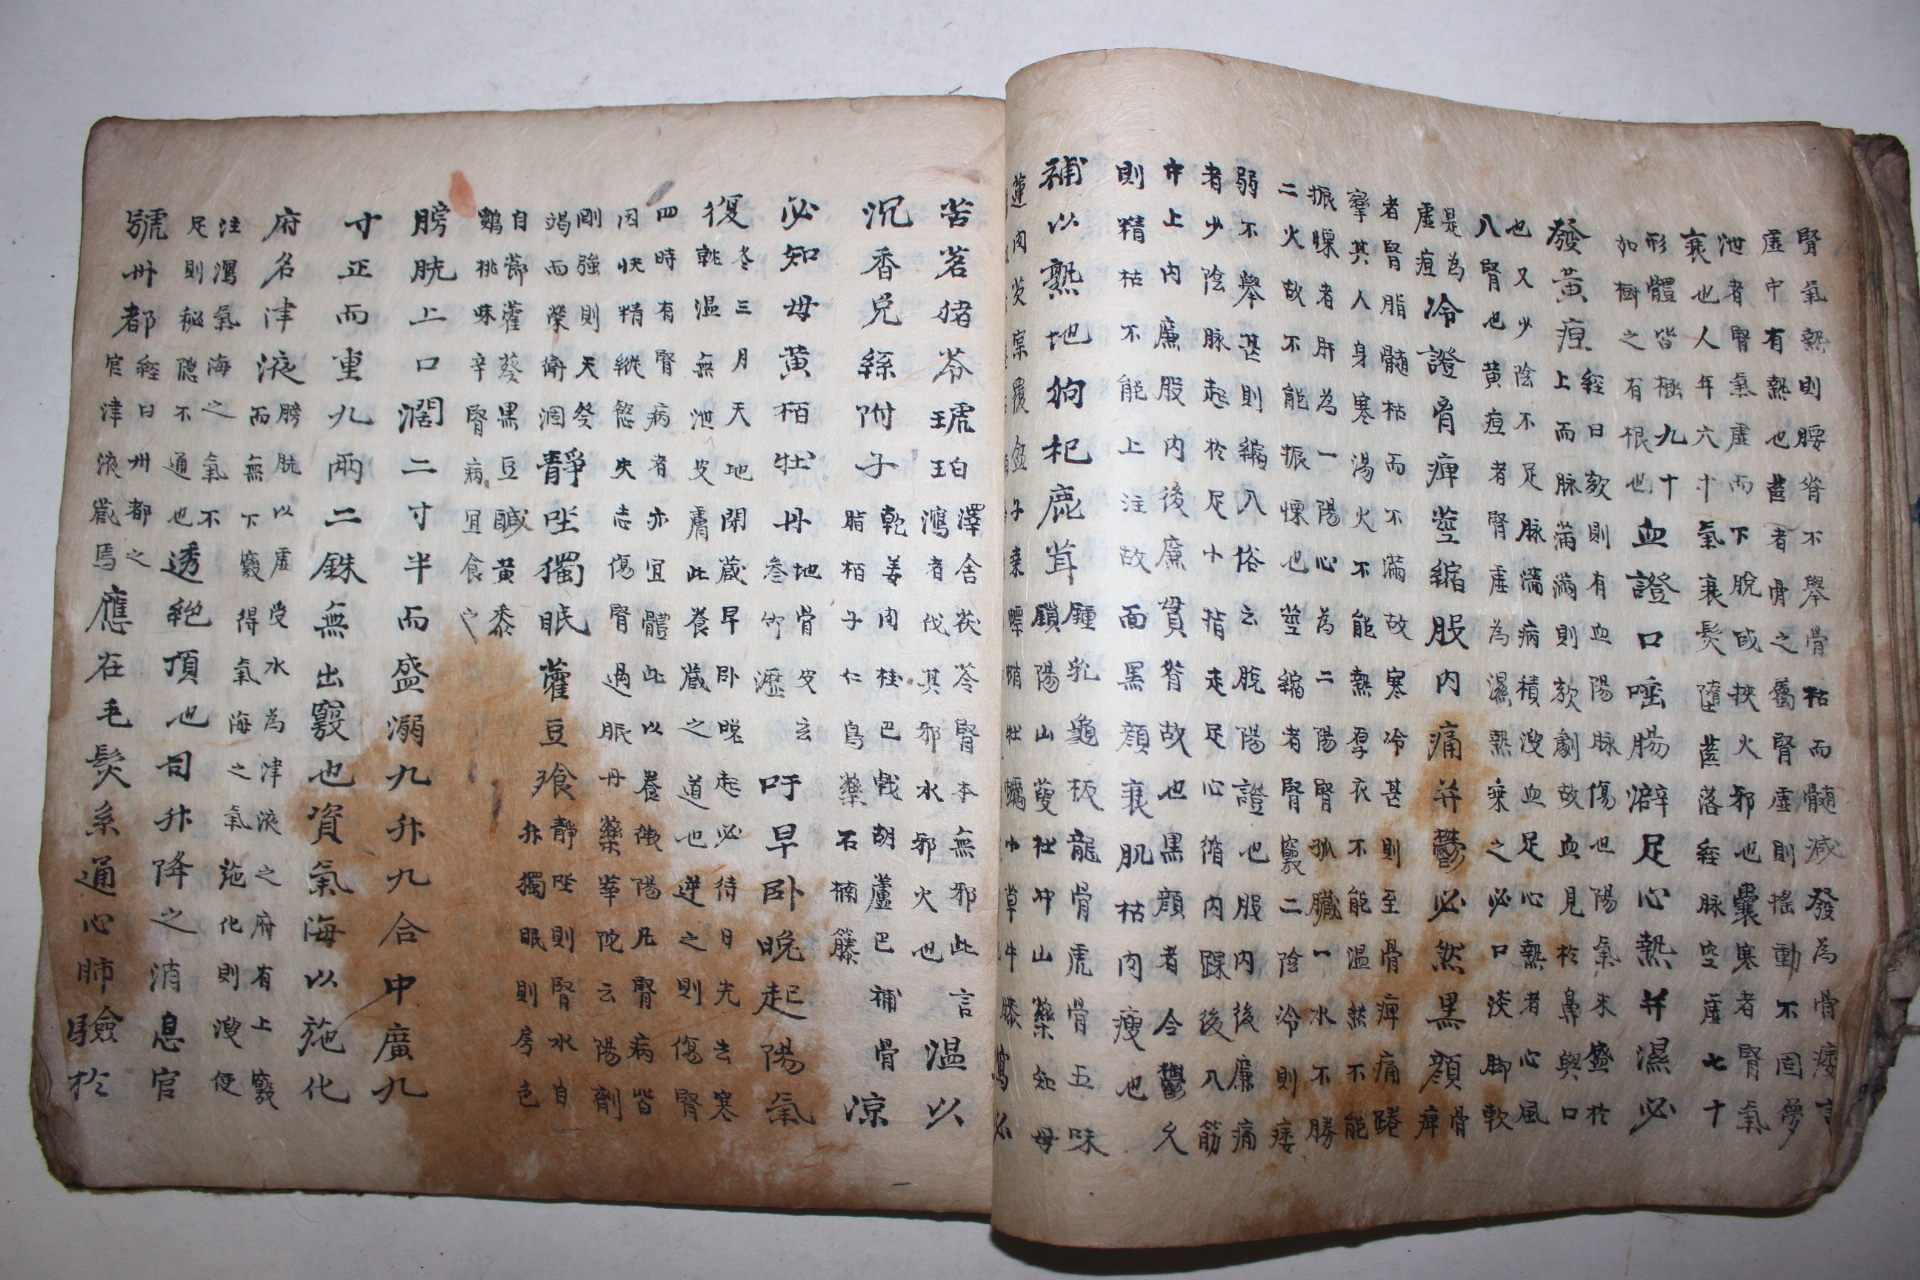 腎氣熱則腰脊不舉骨枯而髓減發為骨痿言
虛中有熱也齒者骨之屬腎虛則搖動不固夢
泄者腎氣虛而下脫或挾火邪也囊寒者腎氣
衰也人年六十氣衰髮墮齒落經脉空虛七十
形體皆極九十
如樹之有根也
血證口唾腸澼足心熱并濕必
發黃疸
經曰欬則有血陽脉傷也陽氣未盛於
上而脉滿滿則欬劇故血見於鼻與口
也又少陰不足脉滿病積溲血足心熱者心風
八腎也黃疸者腎虛為濕熱乗之必口淡脚軟
是為
虛疸
冷證骨痺莖縮股內痛并鬱必然黑顔
骨
痺
者腎脂髓枯而不滿故寒冷甚則至骨痺痛踡
攣其人身寒湯火不能熱厚衣不能温然不能
振慄者肝為一陽心為二陽腎孤臟一水不勝
二火故不能振慄也莖縮者腎竅二陰冷則痿
弱不舉甚則縮入俗云脫陽證也股內後廉痛
者少陰脉起於足小指走足心循內踝後入筋
中上內廉股內後廉貫脊故也黑顔者今鬱久
則精枯不能上注故面黑顔衰肌枯肉瘦也
補以熟地枸杞鹿茸
鍾乳龜板龍骨虎骨五味
鎖陽山萸杜冲山藥知母
蓮肉芡寔覆盆子
苦茗猪苓琥珀
澤舍茯苓腎本無邪此言
瀉者伐其邪水邪火也
温以
沉香兔絲附子
乾姜肉桂巴戟胡蘆巴補骨
脂栢子仁烏藥石楠籐
凉
必知母黄栢牡丹
地骨皮玄
參竹瀝
吁早卧晚起陽氣
復
冬三月天地閉蔵早卧晩起必待日光去寒
就温無泄皮膚此養蔵之道也逆之則傷腎
四時有腎病者亦宜體此以養微陽凡腎病皆
因快精縱慾失志傷腎過服丹藥華陀云陽劑
剛強則天癸
竭而榮衛涸
靜坐獨眠藿豆飱
靜坐則腎水自
升獨眠則房色
自節藿葵黑豆鹹黄黍
鷄桃味辛腎病宜食之
膀胱上口濶二寸半而盛溺九升九合中廣九
寸正而重九兩二銖無出竅也資氣海以施化
府名津液
膀胱以虛受水為津液之府有上竅
而無下竅得氣海之氣施化則溲便
注瀉氣海之氣不
足則秘隱不通也
透絶頂也司升降之消息官
號州都
經曰州都之
官津液蔵焉
應在毛髮系通心肺驗於